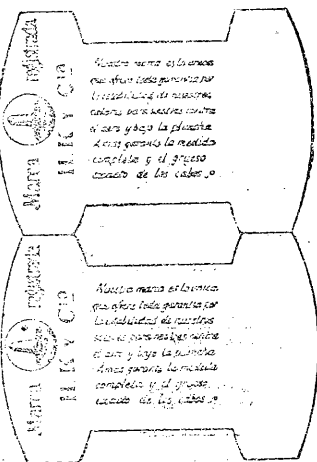 Marca registrada
H. K y Cia
Nuestra marca es la unica
que ofrece toda garantia por
la
de nuestros
colores para
contra
el aire y bajo la plancha
Amas garantiza la medida
completa y el grueso
exacto de los cabos
Marca registrada
H. K y Cia
Nuestra marca es la unica
que ofrece toda garantia por
la
de nuestros
contra
el aire y bajo la plancha
Amas garantiza la medida
completa y el grueso
exacto de los cabos